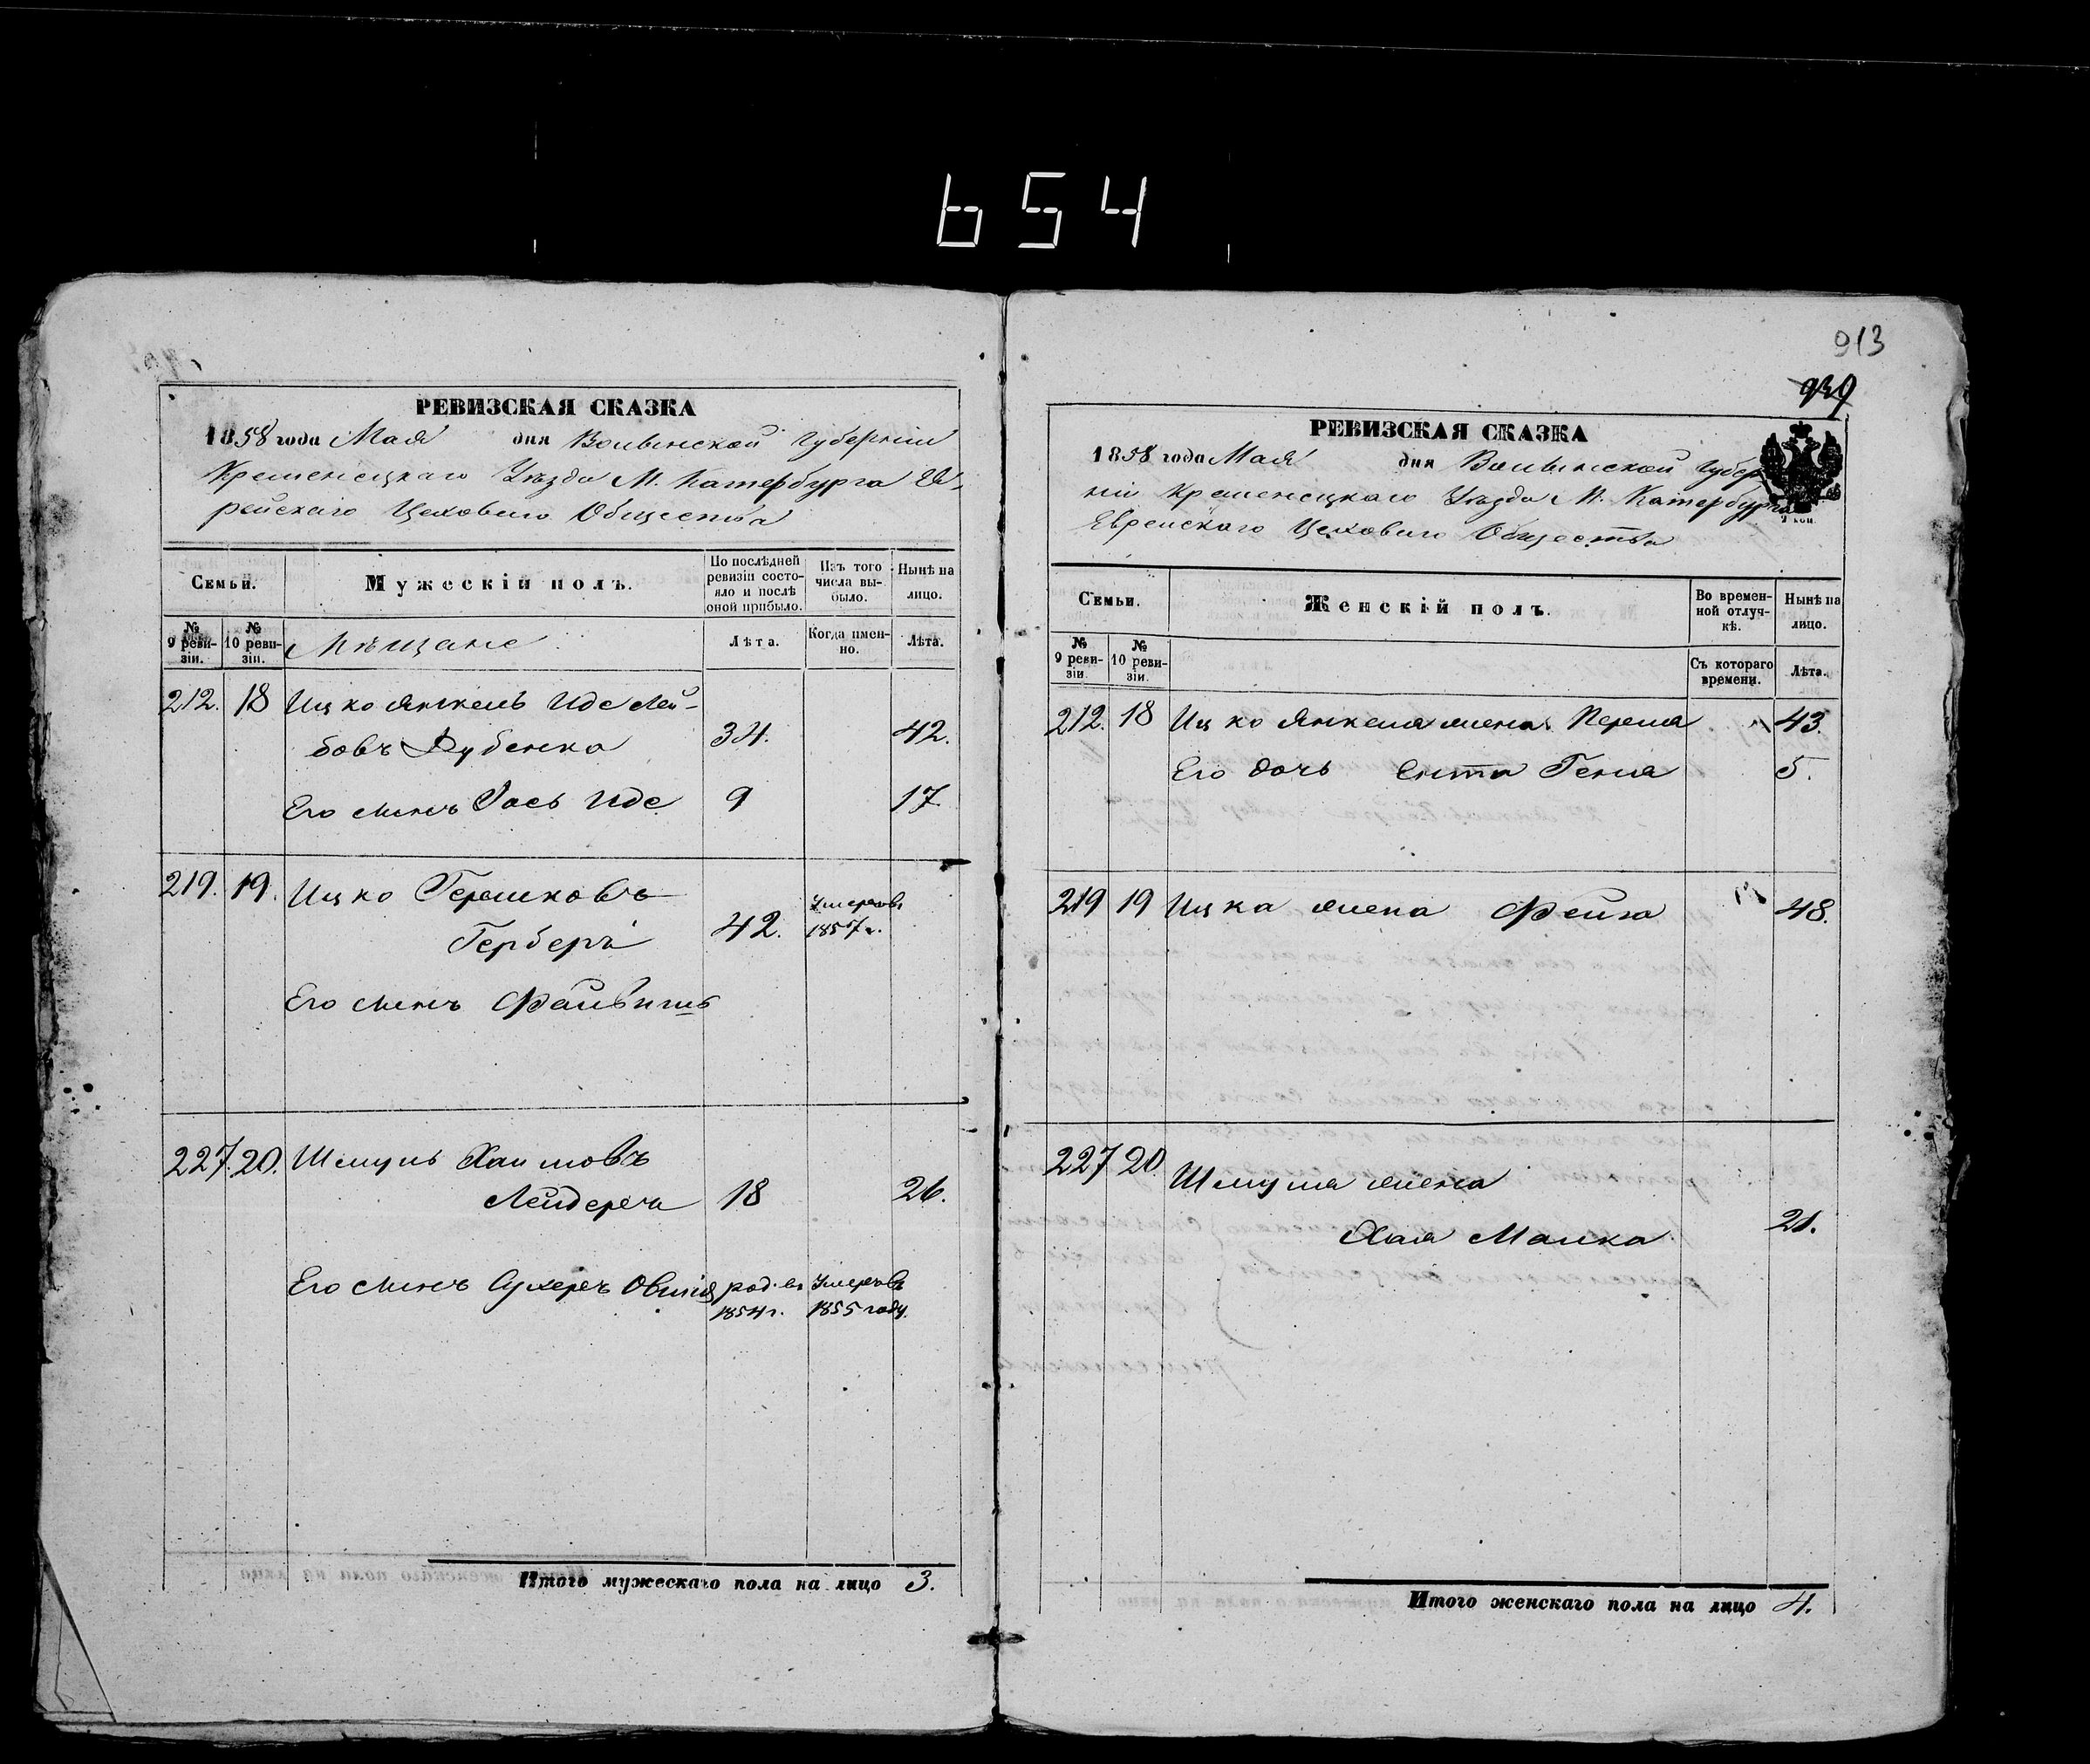 654
РЕВИЗСКАЯ СКАЗКА
1858 года Мая дня Волынской Губерніи
Кременецкаго Уѣзда М. Катербурга Ев-
рейскаго Цеховаго Общества
Семьи.
Мужескій полъ.
По послѣдней ревизіи состо-
яло и послѣ оной прибыло.
Изъ того числа вы-
было.
Нынѣ на лицо.
№ 9 реви-
зіи.
№ 10 реви-
зіи.
Мѣщане
Лѣта.
Когда имен-
но.
Лѣта.
212. 18 Ицко Янкель Иде Лей-
бовъ Дубенко 34. 42.
Его сынъ Иось Иде 9 17.
219. 19. Ицко Гершковъ
Герберъ 42. Умеръ въ
1857 г.
Его сынъ Файвишъ
227. 20. Шмуль Хаимовъ
Лейдерга 18 26.
Его сынъ род. въ Умеръ въ
1854 г. 1855 году.
Итого мужескаго пола на лицо 3.
913
939
РЕВИЗСКАЯ СКАЗКА
1858 года Мая дня Волынской Губер
ніи Кременецкаго Уѣзда М. Катербурга
Еврейскаго Цеховаго Общества
Семьи.
Женскій полъ.
Во времен-
ной отлуч-
кѣ.
Нынѣ на лицо.
№ 9 реви-
зіи.
№ 10 реви-
зіи.
Съ котораго времени.
Лѣта.
212. 18 Ицко Янкеля жена Перля 43.
Его дочь Ента Геня 5.
219 19 Ицка жена Фейга 48.
227 20 Шмуля жена
Хая Малка 21.
Итого женскаго пола на лицо 4.